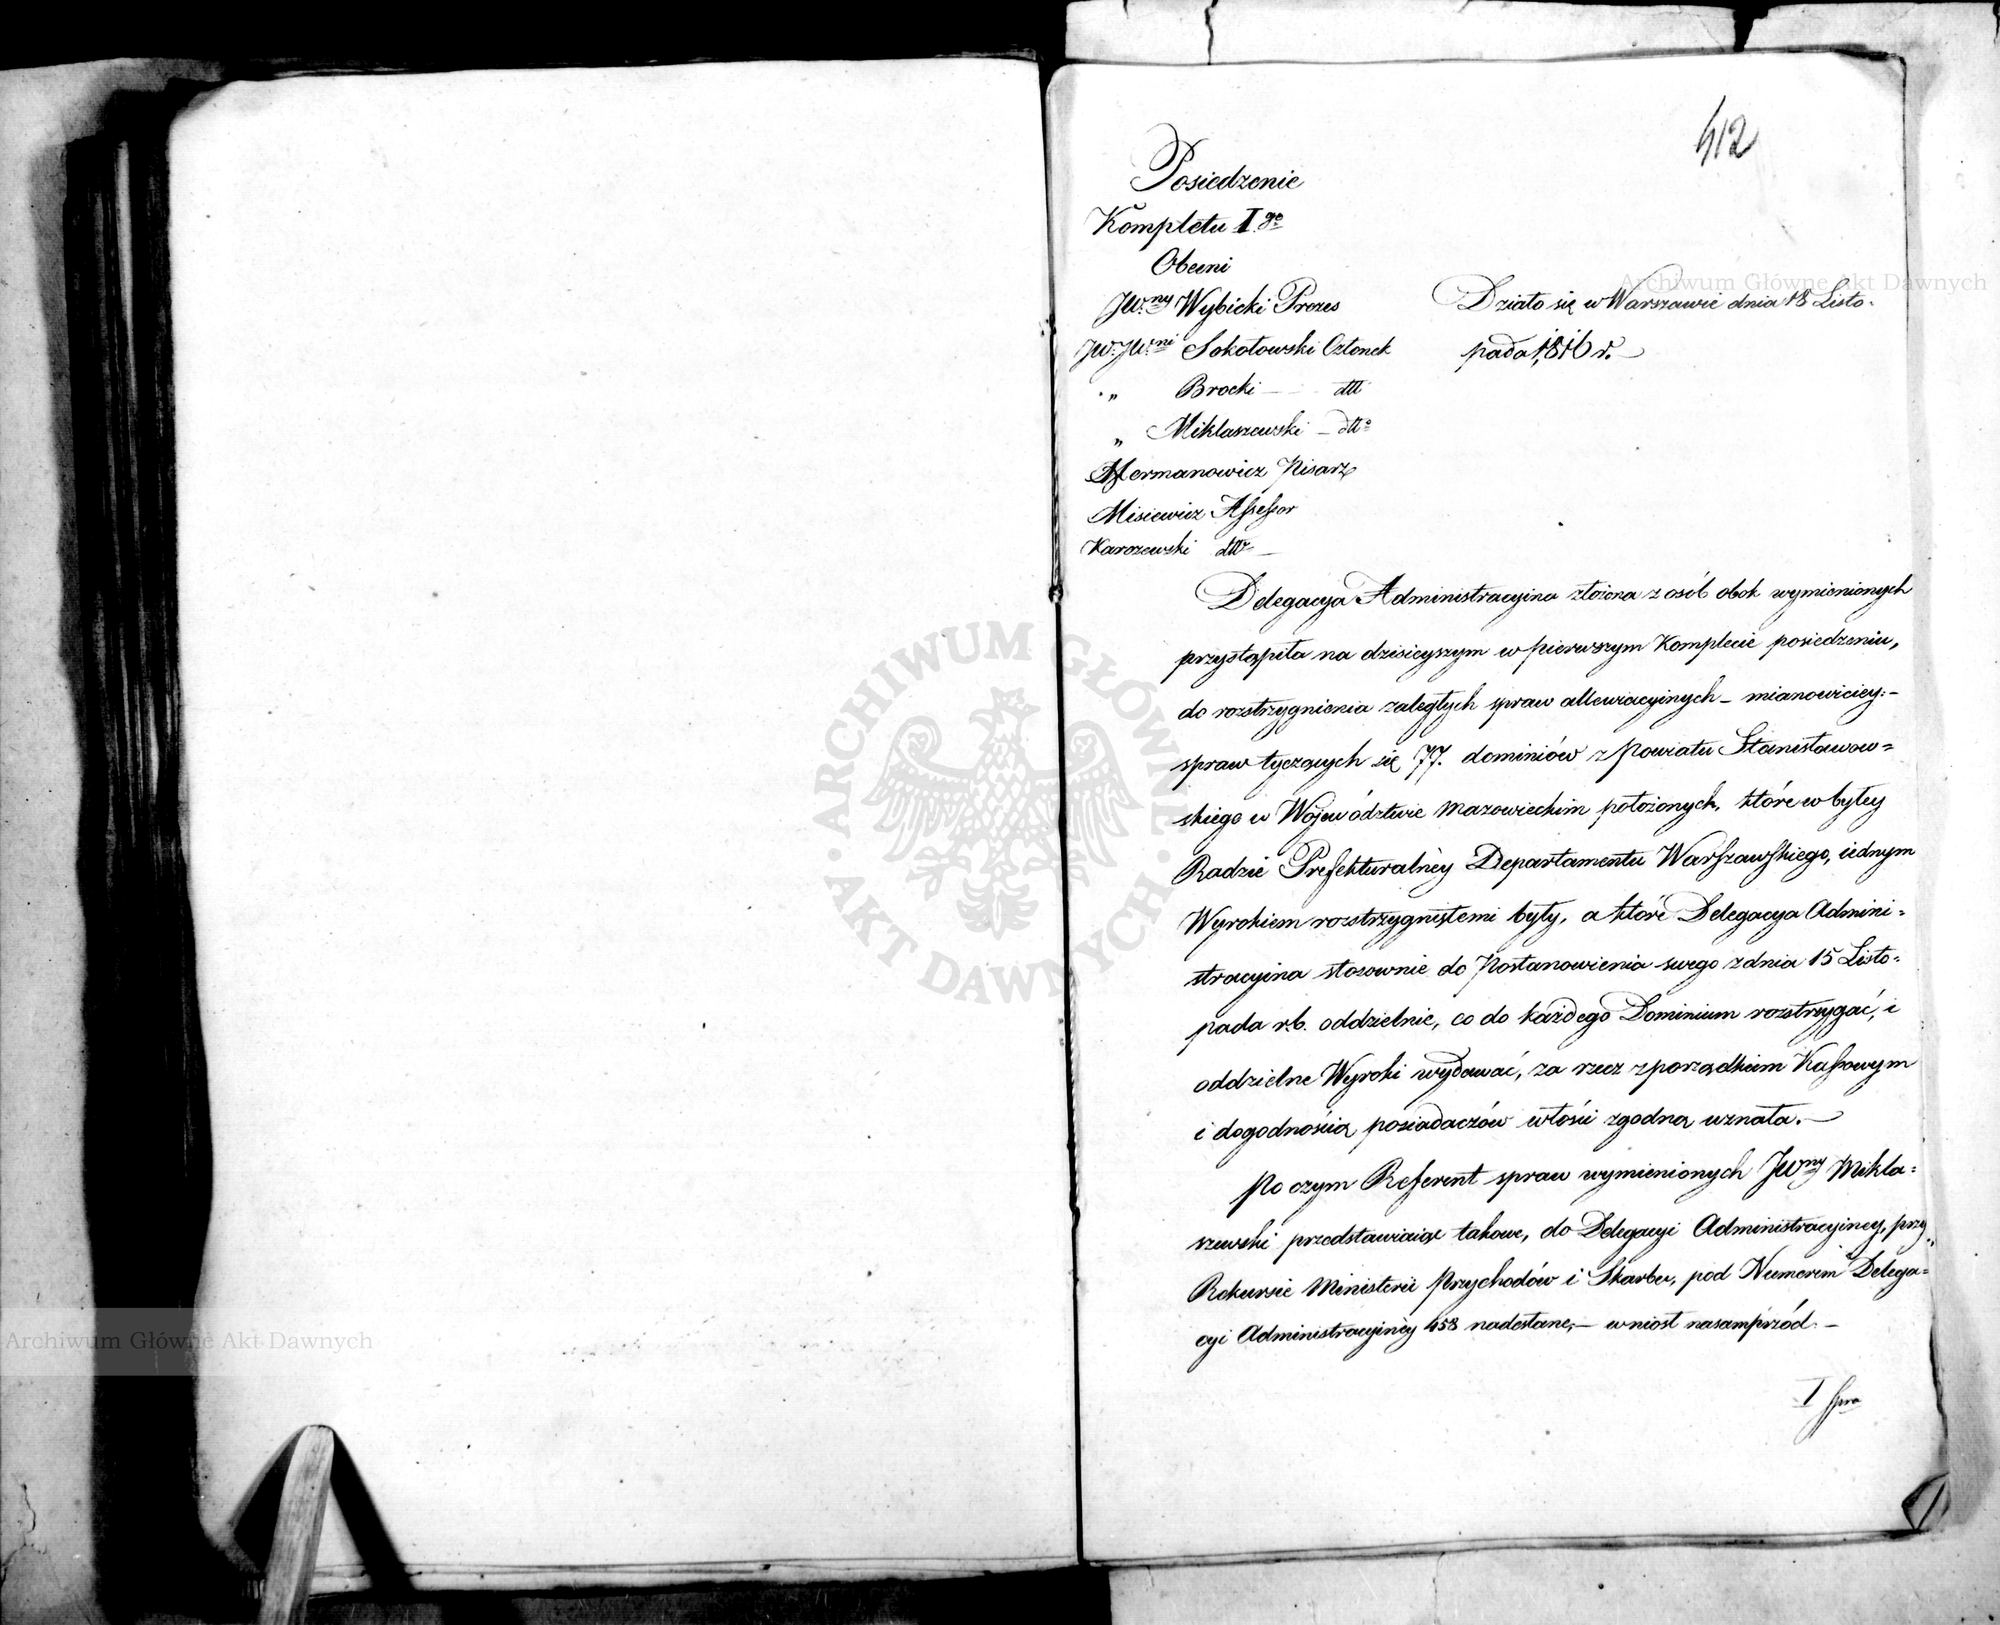 412
Posiedzenie
Kompletu I.go
Obecni
JW.ny Wybicki Prezes
JW.JW.ni Sokołowski Członek
" Brocki — dtt
" Miklaszewski — dtto
Hermanowicz Pisarz
Misiewicz Assessor
Karczewski dtto —
Działo się w Warszawie dnia 18 Listo-
pada 1816 r. —
Delegacya Administracyina złożona z osób obok wymienionych
przystąpiła na dzisieyszym w pierwszym Komplecie posiedzeniu,
do rozstrzygnienia zaległych spraw allewiacyinych — mianowiciey:-
spraw tyczących się 77. dominiów z Powiatu Stanisławow=
skiego w Województwie Mazowieckim położonych, które w byłey
Radzie Prefekturalnéy Departamentu Warszawskiego, iednym
Wyrokiem rozstrzygniętemi były, a które Delegacya Admini=
stracyina stosownie do Postanowienia swego z dnia 15 Listo=
pada r.b. oddzielnie, co do każdego Dominium rozstrzygać, i
oddzielne Wyroki wydawać, za rzecz z porządkiem Kassowym
i dogodnością posiadaczów włości zgodną uznała. —
Po czym Referent spraw wymienionych JWny Mikla=
szewski przedstawiaiąc takowe, do Delegacyi Administracyiney, przy
Rekursie Ministerii Przychodów i Skarbu, pod Numerem Delega=
cyi Administracyinéy 458 nadesłane, — wniosł nasamprzód: —
I Spra
ARCHIWUM GŁÓWNE AKT DAWNYCH
Archiwum Główne Akt Dawnych
Archiwum Główne Akt Dawnych